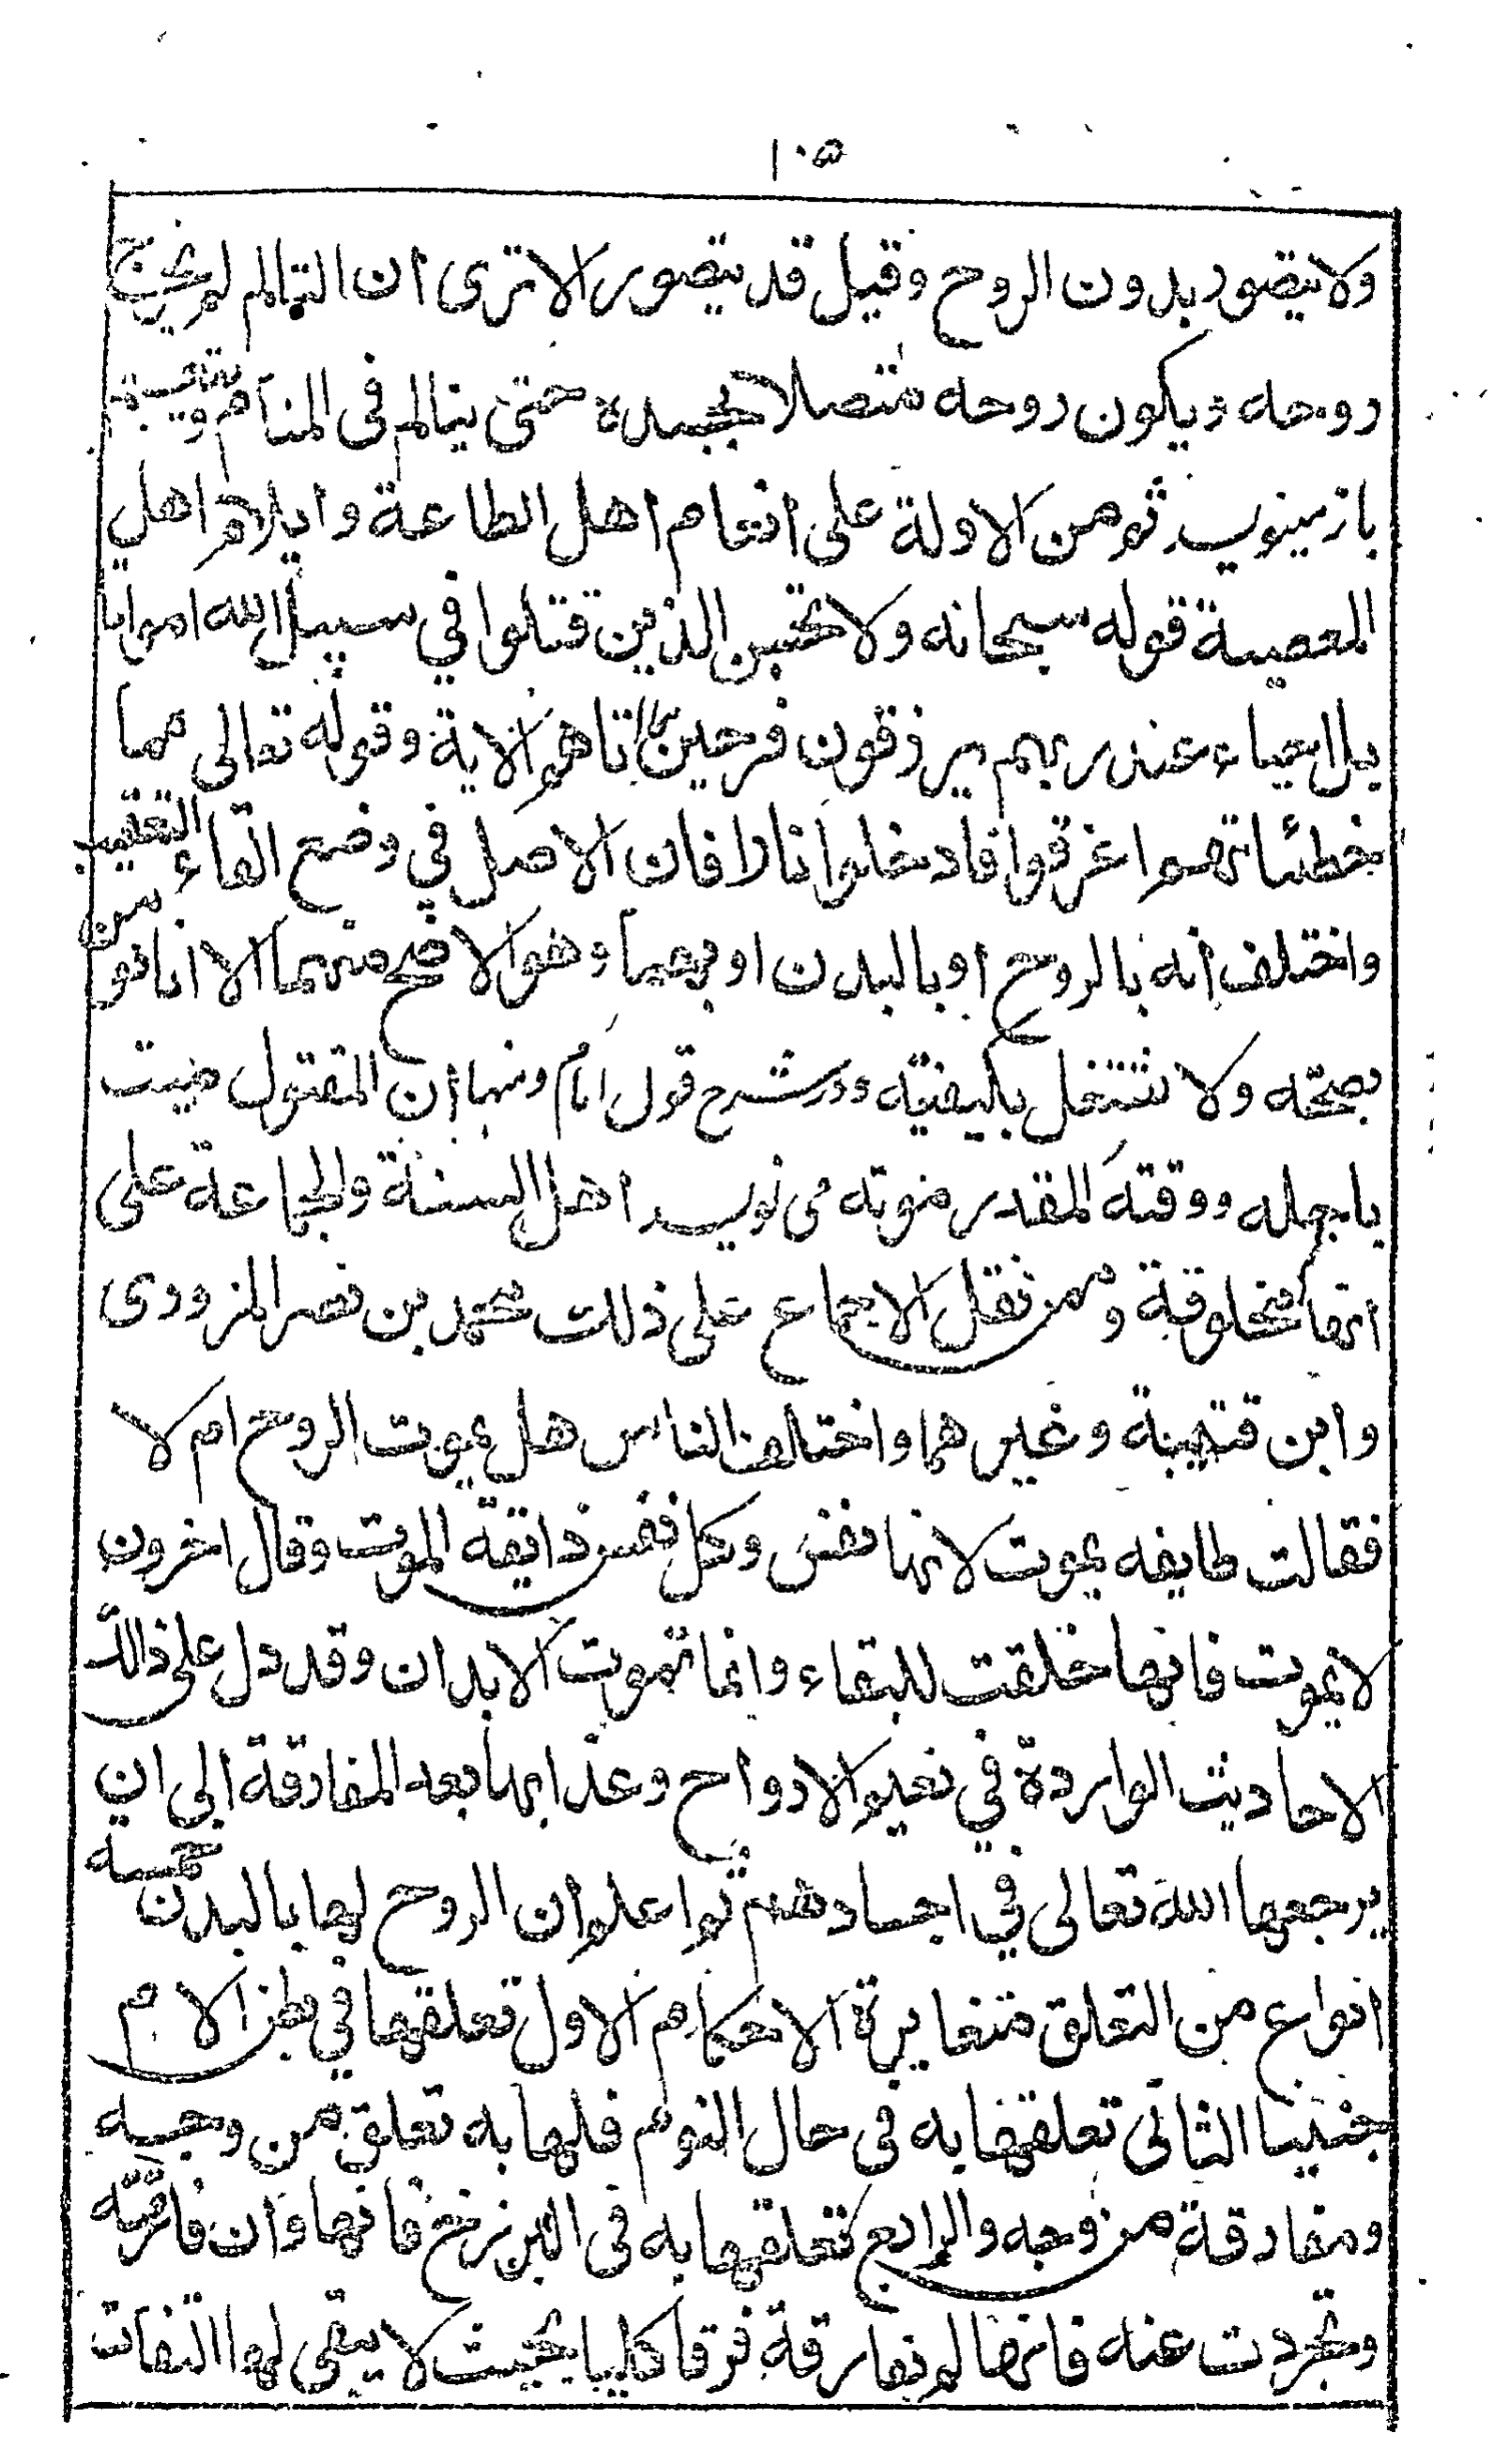 ١٠٥
ولا يتصور بدون الروح وقيل قد يتصور الا ترى ان النايم لم يخرج
روحه ويكون روحه متصلا بجسده حتى يتالم فى المنام ويتنعم
باز مينويسد ثم من الادلة على انعام اهل الطاعة وايلام اهل
المعصية قوله سبحانه ولا تحسبن الذين قتلوا في سبيل الله امواتا
بل احياء عند ربهم يرزقون فرحين بما اتاهم الاية وقوله تعالى مما
خطئاتهم اغرقوا فادخلوا نارا فان الاصل في وضع الفاء التعقيب
واختلف انه بالروح او بالبدن او بهما وهو الاصح منهما الا انا نؤمن
بصحته ولا نشتغل بكيفيته ودر شرح قول امام ومنها ان المقتول ميت
باجله ووقته المقدر موته مى نويسد اهل السنة والجماعة على
انها مخلوقة وممن نقل الاجماع على ذلك محمد بن نصر المزودى
وابن قتيبة وغيرهما واختلف الناس هل يموت الروح ام لا
فقالت طايفه يموت لانها نفس وكل نفس ذايقة الموت وقال اخرون
لا يموت فانها خلقت للبقاء وانما تموت الابدان وقد دل على ذالك
الاحاديث الواردة في نعيم الارواح وعذابها بعد المفارقة الى ان
يرجعها الله تعالى في اجسادهم ثم اعلم ان الروح لها بالبدن خمسه
انواع من التعلق متغايرة الاحكام الاول تعلقها في بطن الام
جنينا الثانى تعلقها به فى حال النوم فلها به تعلق من وجه
ومفارقة من وجه والرابع تعلقها به فى البرزخ فانها وان فارقته
وتجردت عنه فانها لم تفارقة فرقا كليا بحيث لا يبقى لها التفات